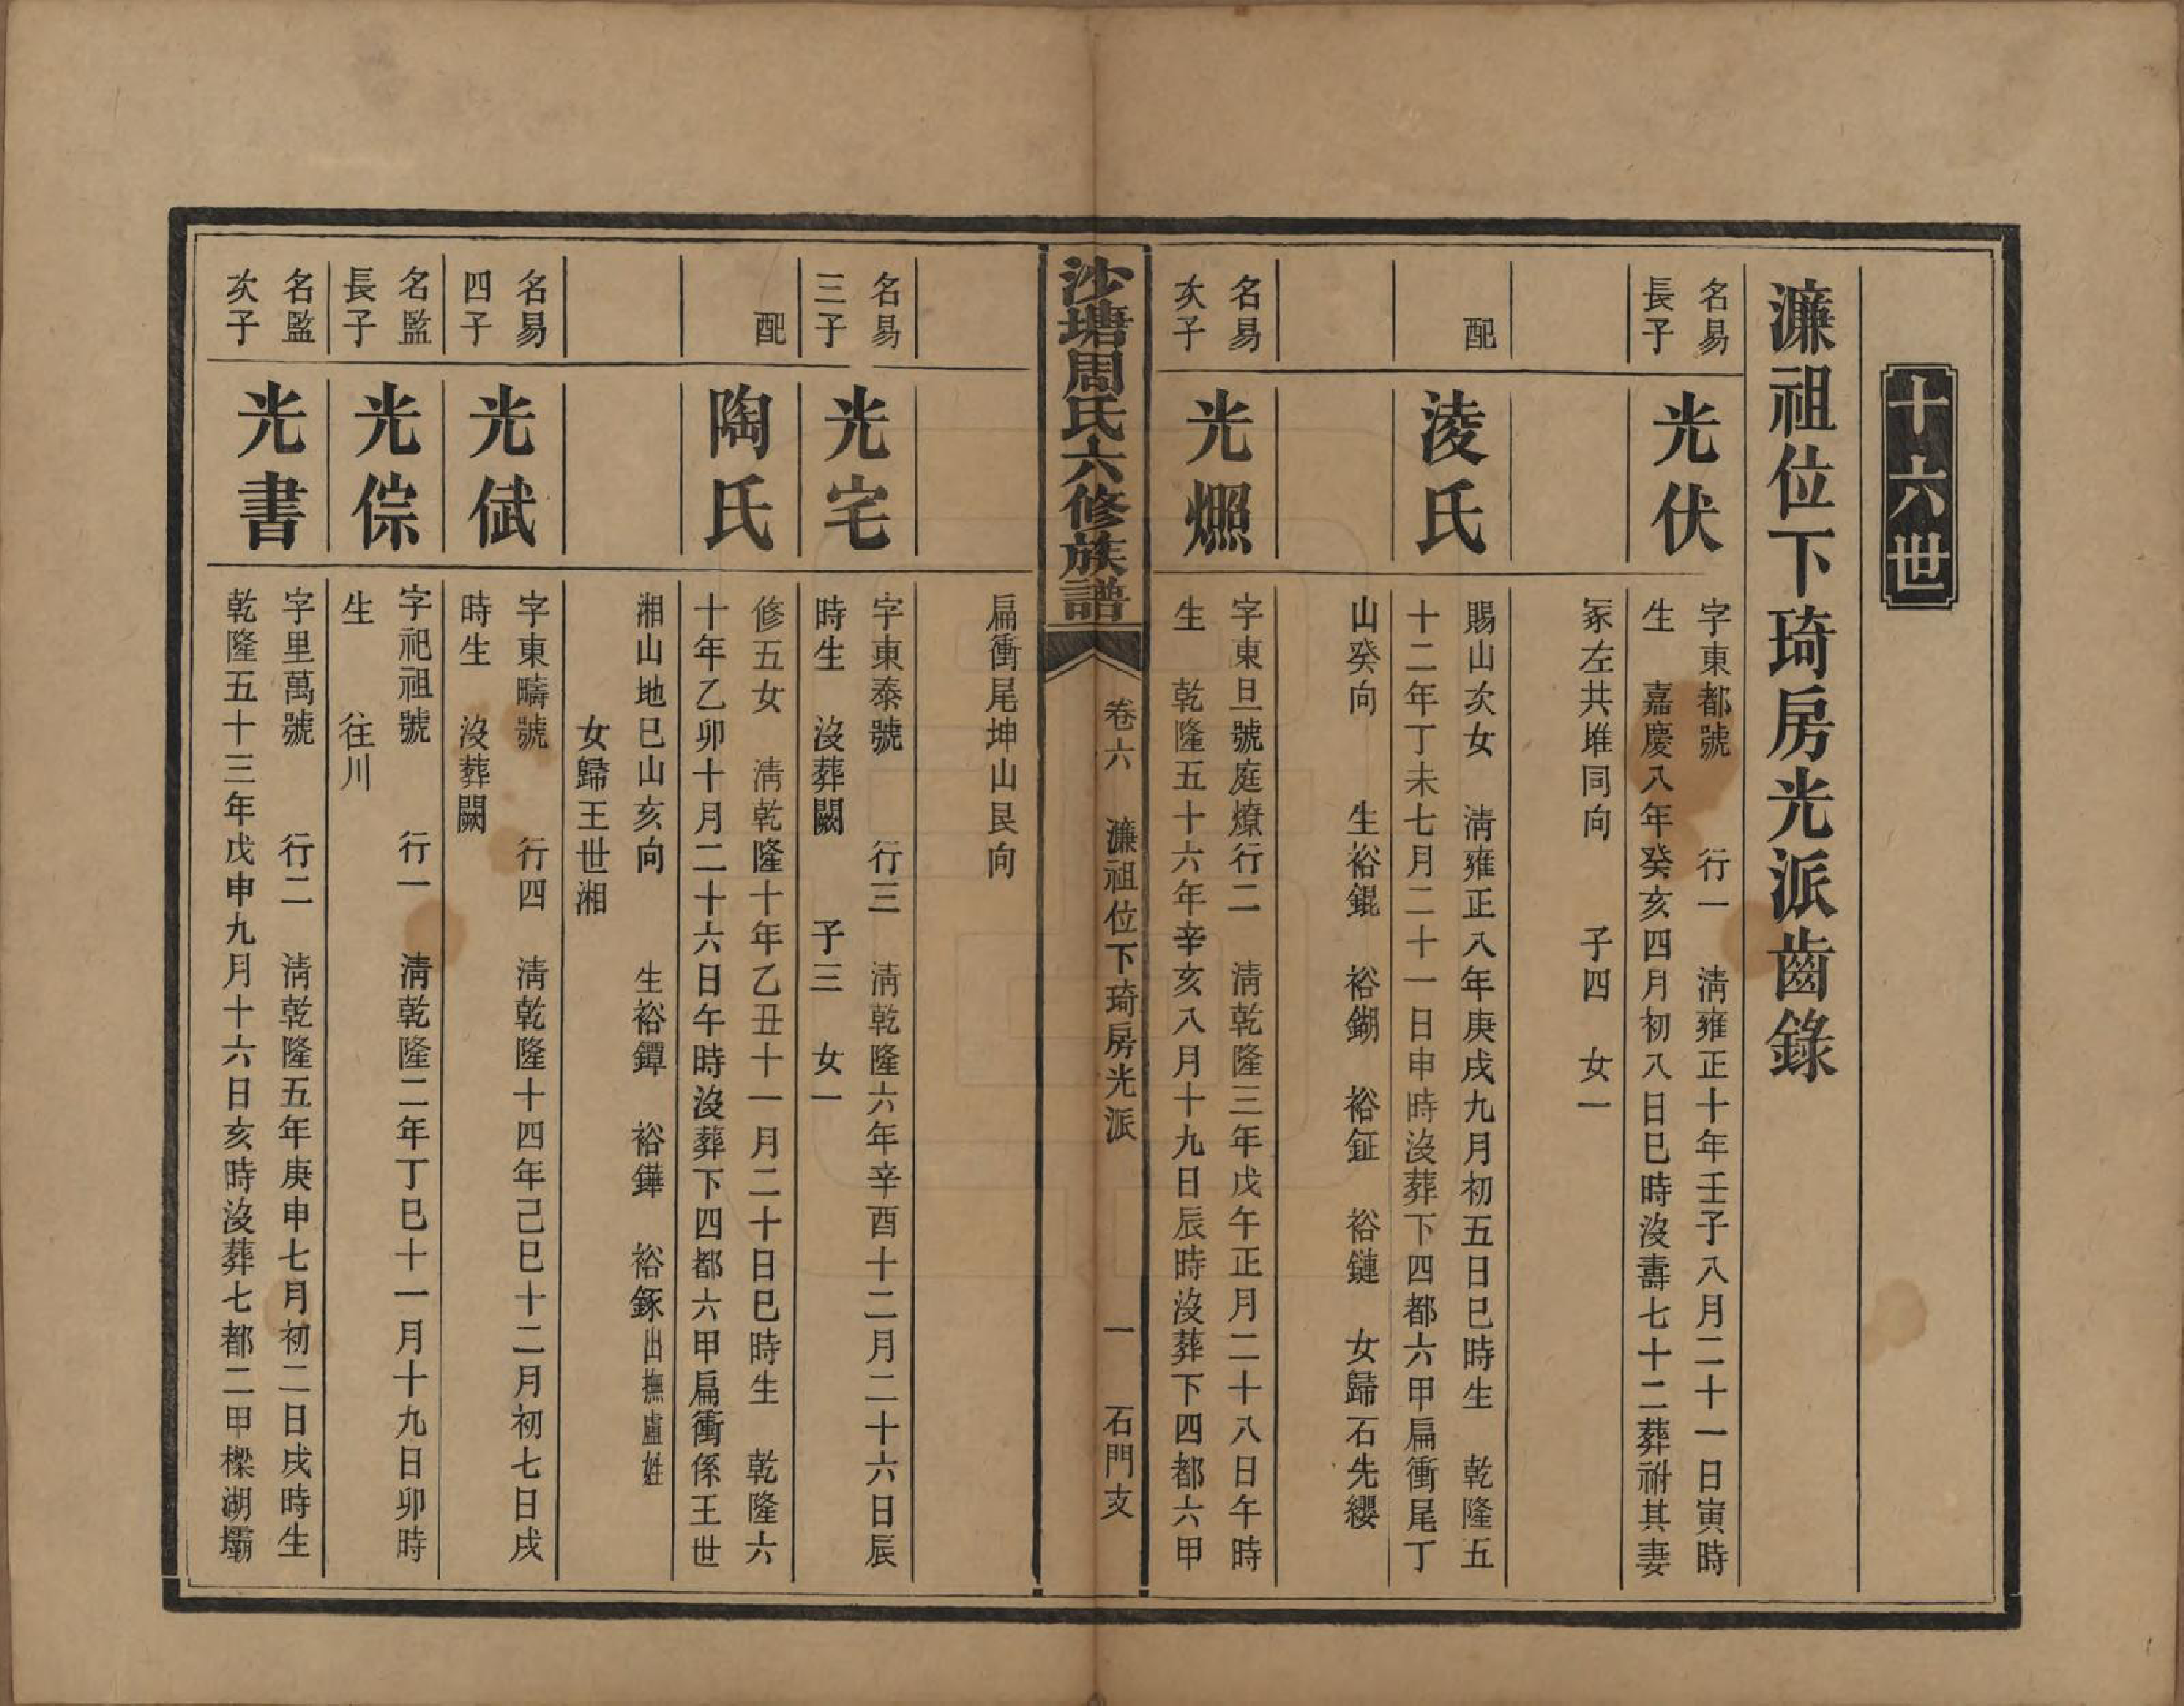 十六世
濂祖位下琦房光派齒錄
名易
長子
光伏
字東都號　行一　淸雍正十年壬子八月二十一日寅時
生　嘉慶八年癸亥四月初八日巳時沒壽七十二葬祔其妻
冢左共堆同向　子四　女一
配
淩氏
賜山次女　淸雍正八年庚戌九月初五日巳時生　乾隆五
十二年丁未七月二十一日申時沒葬下四都六甲扁衝尾丁
山癸向　生裕錕　裕鎙　裕鉦　裕鏈　女歸石先纓
名易
次子
光燳
字東旦號庭燎行二　淸乾隆三年戊午正月二十八日午時
生　乾隆五十六年辛亥八月十九日辰時沒葬下四都六甲
沙塘周氏六修族譜
卷六　濂祖位下琦房光派　一　石門支
扁衝尾坤山艮向
名易
三子
光宅
字東泰號　行三　淸乾隆六年辛酉十二月二十六日辰
時生　沒葬闕　子三　女一
配
陶氏
修五女　淸乾隆十年乙丑十一月二十日巳時生　乾隆六
十年乙卯十月二十六日午時沒葬下四都六甲扁衝係王世
湘山地巳山亥向　生裕鐔　裕鏵　裕鋑出撫盧姓
女歸王世湘
名易
四子
光倵
字東疇號　行四　淸乾隆十四年己巳十二月初七日戌
時生　沒葬闕
名監
長子
光倧
字祀祖號　行一　淸乾隆二年丁巳十一月十九日卯時
生　往川
名監
次子
光書
字里萬號　行二　淸乾隆五年庚申七月初二日戌時生
乾隆五十三年戊申九月十六日亥時沒葬七都二甲樑湖壩